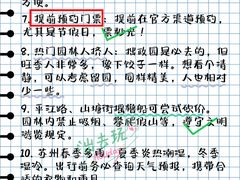 方便。
7. 提前预约门票：提前在官方渠道预约，
尤其是节假日，票抢光！
8. 热门园林人挤人：拙政园是必去的，但
旺季人非常多，像下饺子一样。想看个清
静，可以考虑留园，同样精美，人少相对少
一些。
9. 平江路、山塘街摇橹船可尝试砍价。
园林内禁止吸烟、攀爬假山等，遵守文明
游览规定。
10. 苏州春季多雨，夏季炎热潮湿，冬季
湿冷。出行前务必查询天气预报，携带合
适的衣物和雨具
出去玩